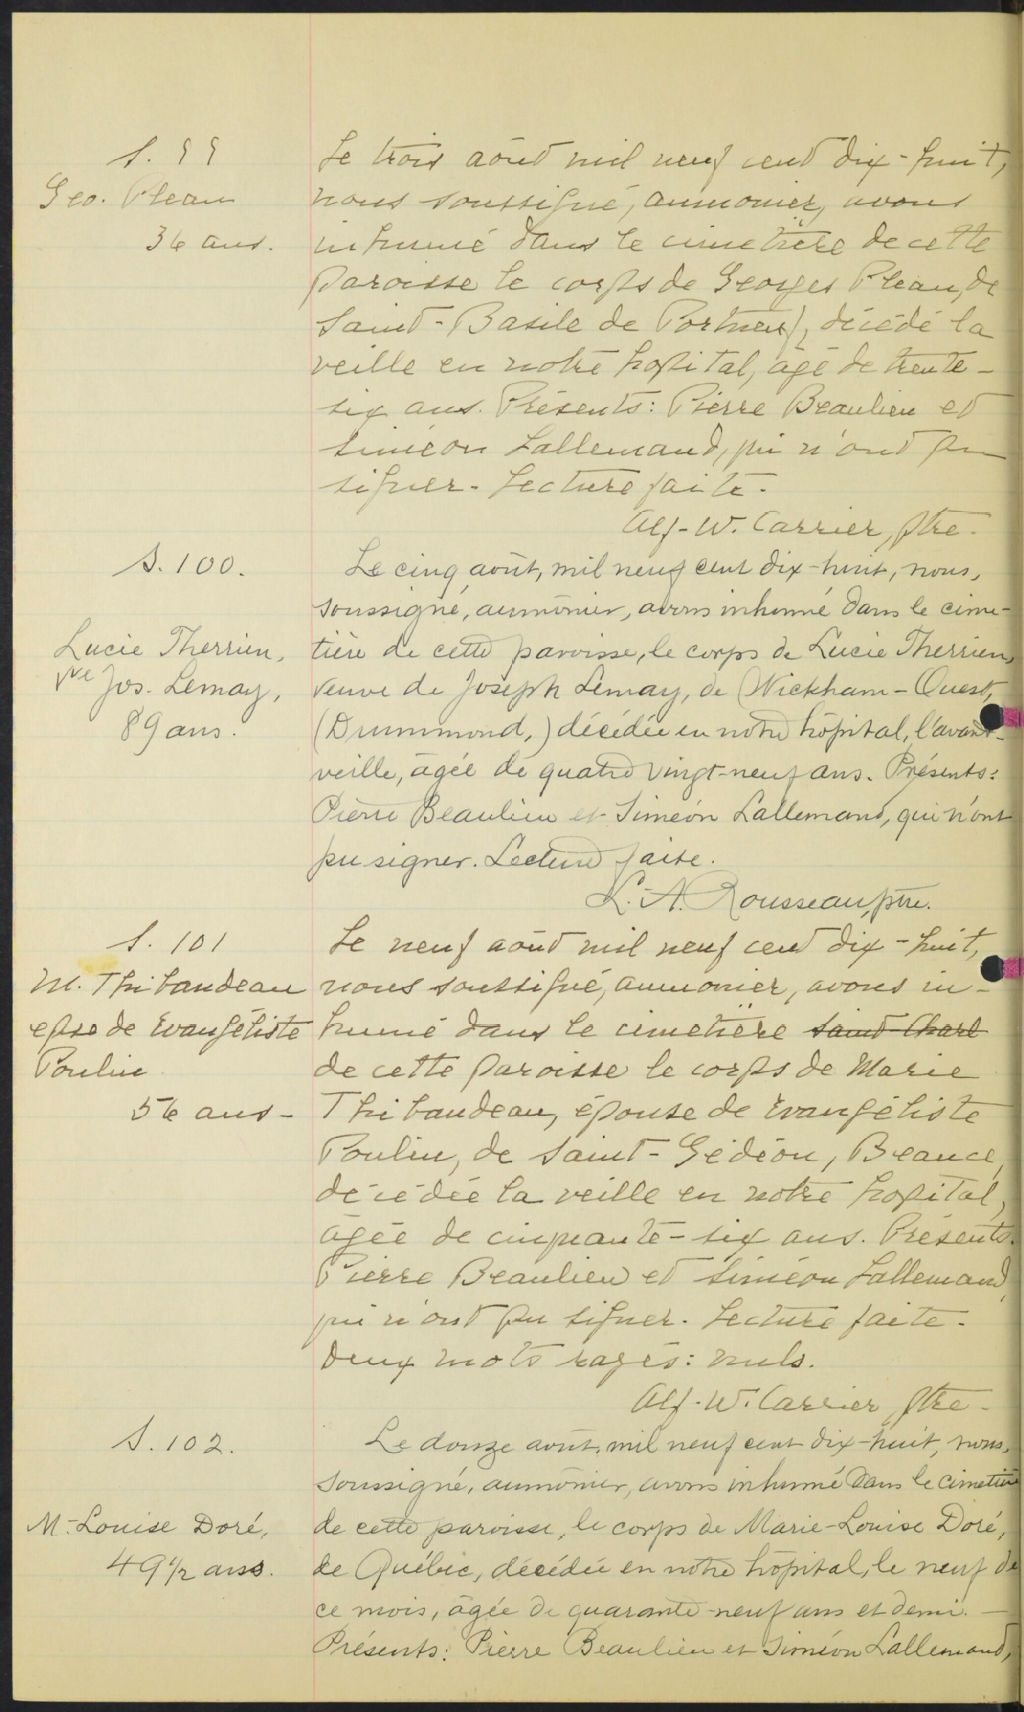 S. 99
Geo. Pleau
36 ans.
Le trois août mil neuf cent dix-huit,
nous soussigné, aumonier, avons
inhumé dans le cimetière de cette
paroisse le corps de Georges Pleau, de
Saint-Basile de Portneuf, décédé la
veille en notre hopital, âgé de trente-
six ans. Présents: Pierre Beaulieu et
Siméon Lallemand, qui n'ont pu
signer. Lecture faite.
Alf-W. Carrier, ptre.
S. 100.
Lucie Therrien,
Ve Jos. Lemay,
89 ans.
Le cinq août, mil neuf cent dix-huit, nous,
soussigné, aumônier, avons inhumé dans le cime-
tière de cette paroisse, le corps de Lucie Therrien,
veuve de Joseph Lemay, de Wickham-Ouest,
(Drummond,) décédée en notre hôpital, l'avant-
veille, âgée de quatre vingt-neuf ans. Présents:
Pierre Beaulieu et Siméon Lallemand, qui n'ont
pu signer. Lecture faite.
L.-A. Rousseau, ptre.
S. 101
M. Thibaudeau
epse de Evangéliste
Poulin
56 ans-
Le neuf août mil neuf cent dix-huit,
nous soussigné, aumonier, avons in-
humé dans le cimetière Saint-Charl
de cette paroisse le corps de Marie
Thibaudeau, épouse de Evangéliste
Poulin, de Saint-Gédéon, Beauce,
décédée la veille en notre hopital,
âgée de cinquante-six ans. Présents:
Pierre Beaulieu et Siméon Lallemand,
qui n'ont pu signer. Lecture faite.
Deux mots rayés: nuls.
Alf-W. Carrier ptre.
S. 102.
M.-Louise Doré,
49 1/2 ans.
Le douze août, mil neuf cent dix-huit, nous,
soussigné, aumônier, avons inhumé dans le cimetière
de cette paroisse, le corps de Marie-Louise Doré,
de Québec, décédée en notre hôpital, le neuf de
ce mois, âgée de quarante-neuf ans et demi. —
Présents: Pierre Beaulieu et Siméon Lallemand,